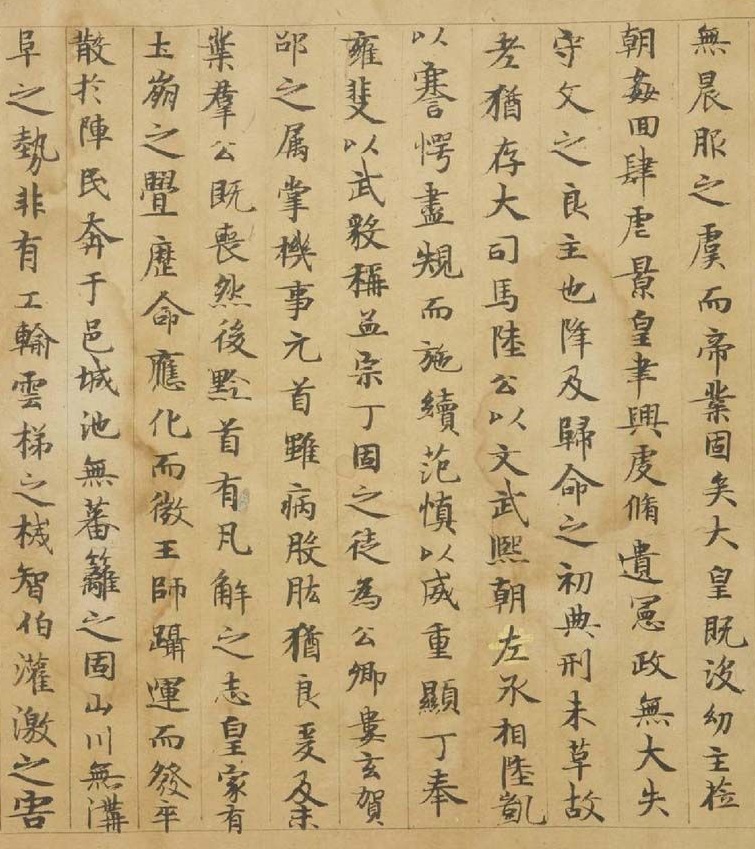 無晨服之虞而帝業固矣大皇既没幼主莅
朝姦回肆虐景皇聿興虔脩遺憲政無大失
守文之良主也降及歸命之初典刑未草故
老猶存大司馬陸公以文武熙朝左丞相陸凱
以謇愕盡規而施續范慎以威重顯丁奉
雍斐以武毅稱孟宗丁固之徒為公卿婁玄賀
邵之属掌機事元首雖病股肱猶良爰及末
葉羣公既喪然後黔首有瓦解之志皇家有
土崩之舋歷命應化而微王師躡運而發卒
散於陣民奔于邑城池無蕃籬之固山川無溝
阜之勢非有工輸雲梯之械智伯灌激之害